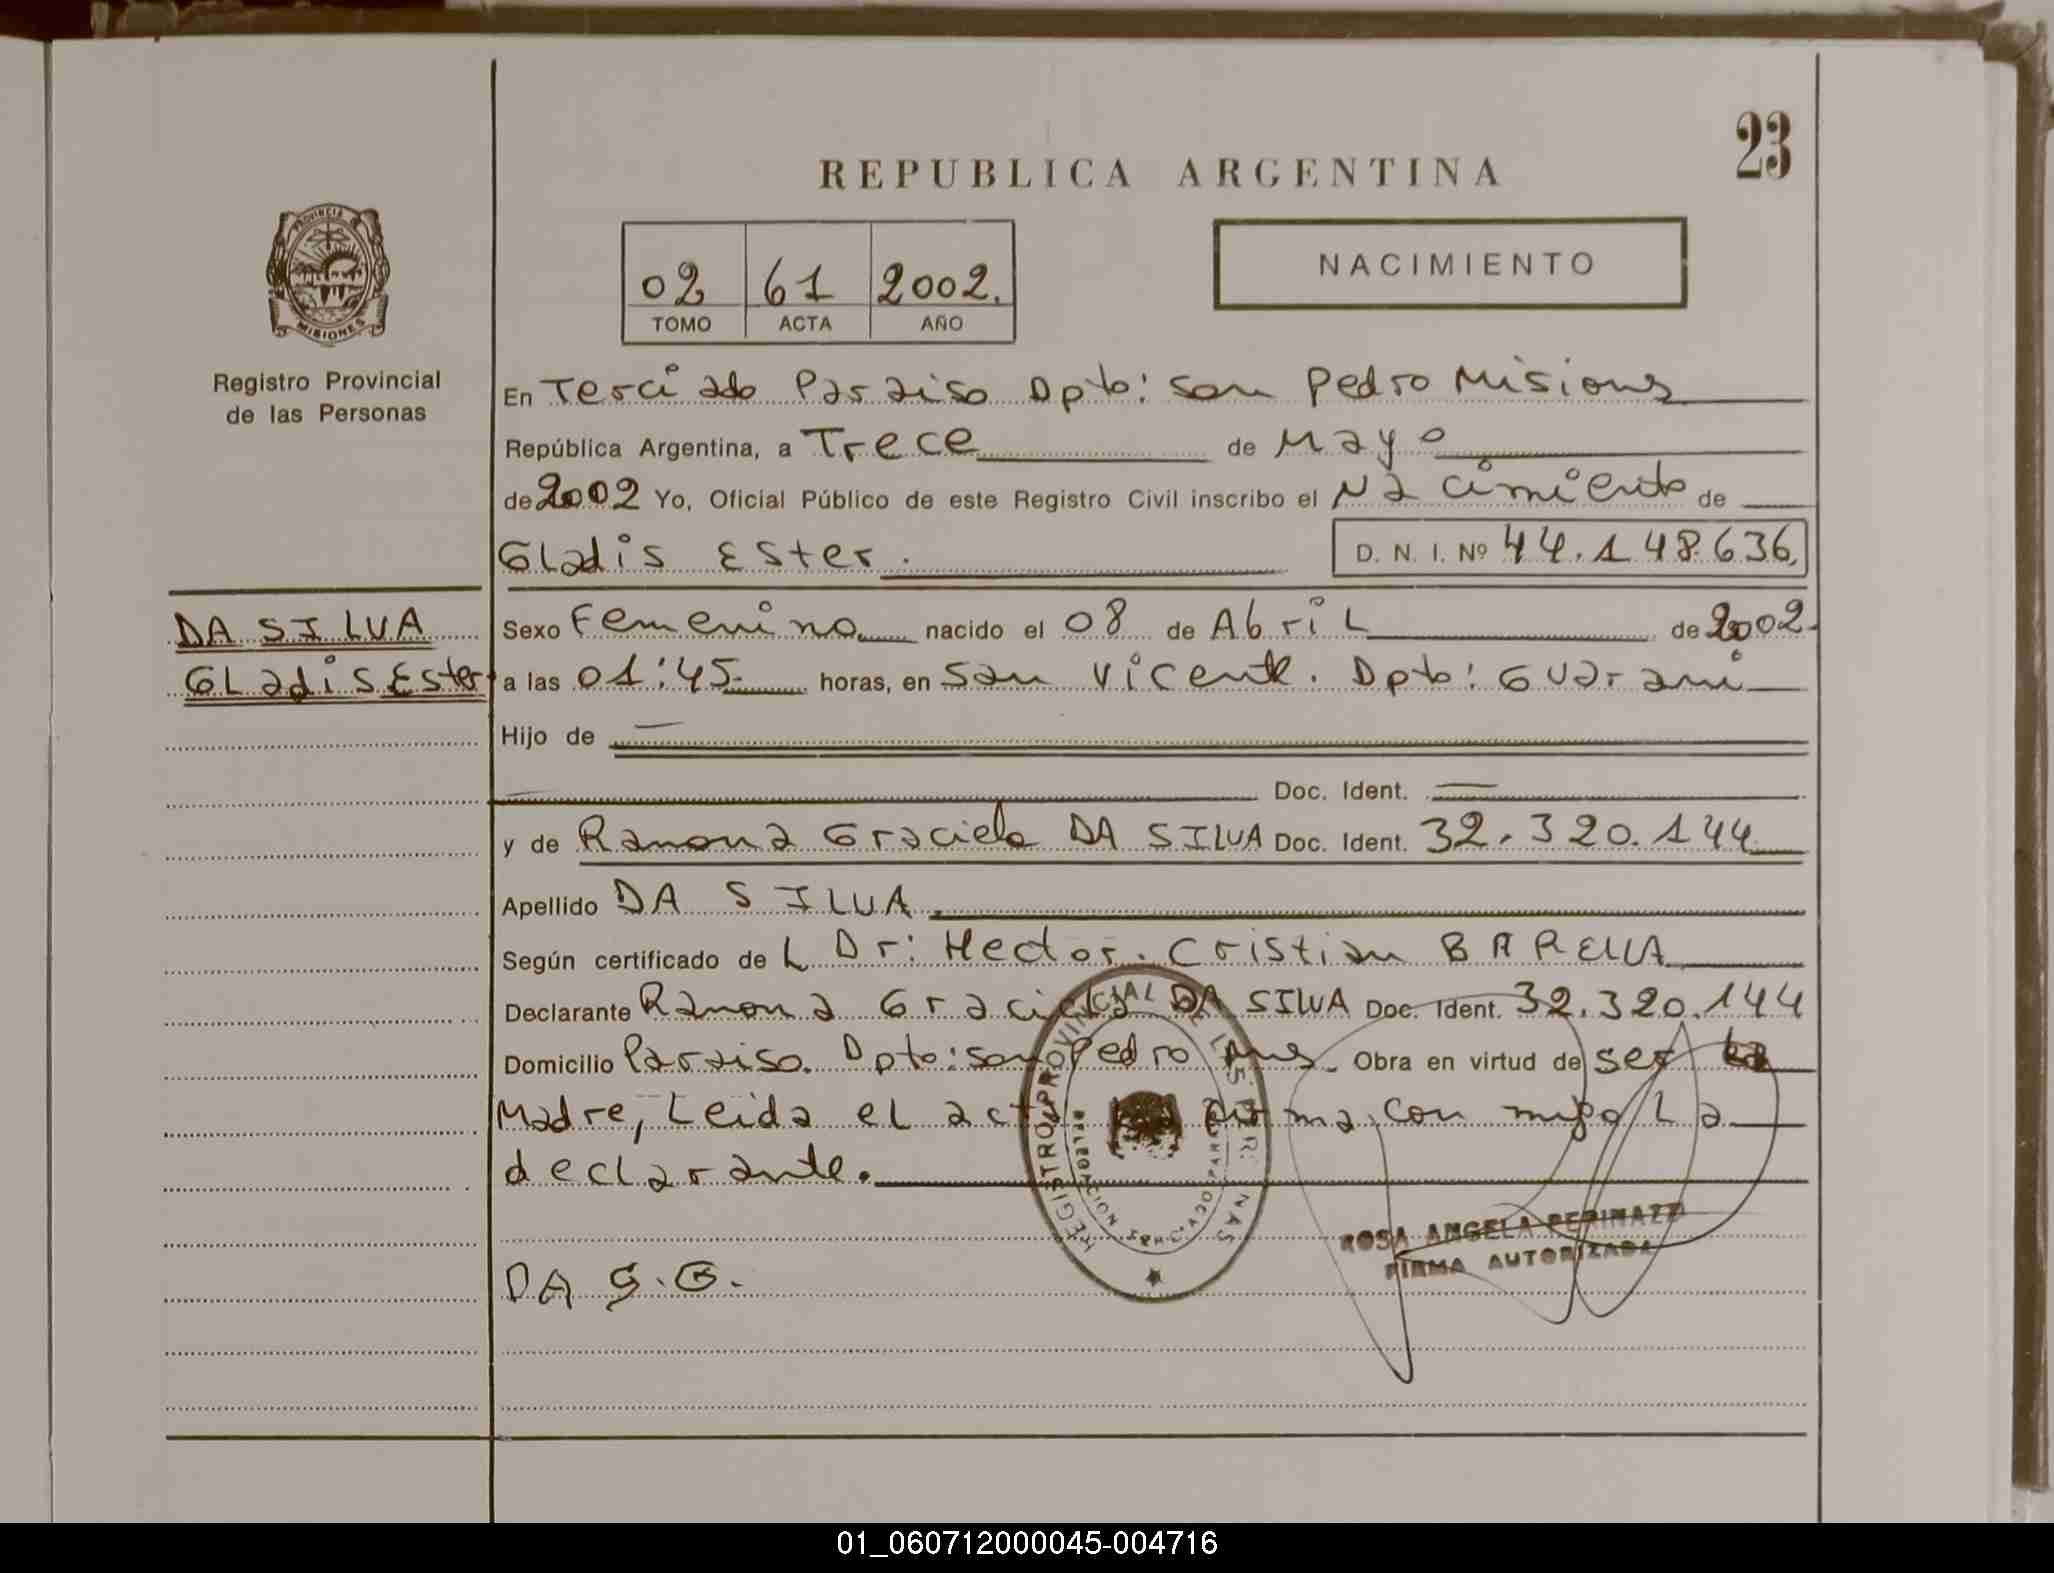 23
REPUBLICA ARGENTINA
PROVINCIA DE
MISIONES
Registro Provincial
de las Personas
02 61 2002.
TOMO ACTA AÑO
NACIMIENTO
En Terciado Paraiso Dpto: San Pedro Misiones
República Argentina, a Trece de Mayo
de 2002 Yo, Oficial Público de este Registro Civil inscribo el Nacimiento de
Gladis Ester. D. N. I. Nº 44.148.636.
DA SILVA
Gladis Ester
Sexo Femenino nacido el 08 de Abril de 2002.
a las 01:45 horas, en San Vicente. Dpto: Guarani
Hijo de
Doc. Ident.
y de Ramona Graciela DA SILVA Doc. Ident. 32.320.144
Apellido DA SILVA.
Según certificado de L Dr: Hector. Cristian BARELLA
Declarante Ramona Graciela DA SILVA Doc. Ident. 32.320.144
Domicilio Paraiso. Dpto: San Pedro Mnes. Obra en virtud de ser la
Madre, Leida el acta firma con migo La
declarante.
REGISTRO PROVINCIAL DE LAS PERSONAS
DELEGACION
ROSA ANGELA PERINAZZI
FIRMA AUTORIZADA
DA S. G.
01_060712000045-004716